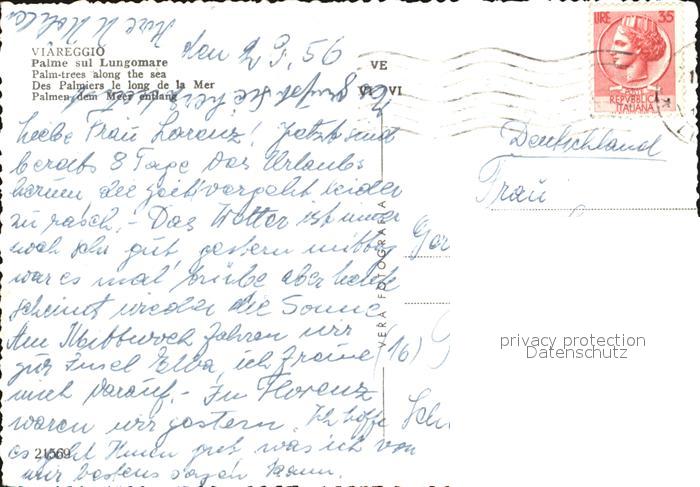 den 2.9.56
VIAREGGIO
Palme sul Lungomare
Palm-trees along the sea
Des Palmiers le long de la Mer
Palmen dem Meer entlang
VE
VI
LIRE 35
POSTE
REPVBBLICA
ITALIANA
VERA FOTOGRAFIA
Liebe Frau Lorenz! Jetzt sind
bereits 8 Tage des Urlaubs
herum die Zeit vergeht leider
zu rasch. - Das Wetter ist immer
noch sehr gut, gestern mittag
war es mal trübe aber heute
scheint wieder die Sonne
Am Mittwoch fahren wir
zur Insel Elba, ich freue
mich darauf. - In Florenz
waren wir gestern. Ich hoffe
es geht Ihnen gut was ich von
mir bestens sagen kann.
Deutschland
Frau
(16)
privacy protection
Datenschutz
21569